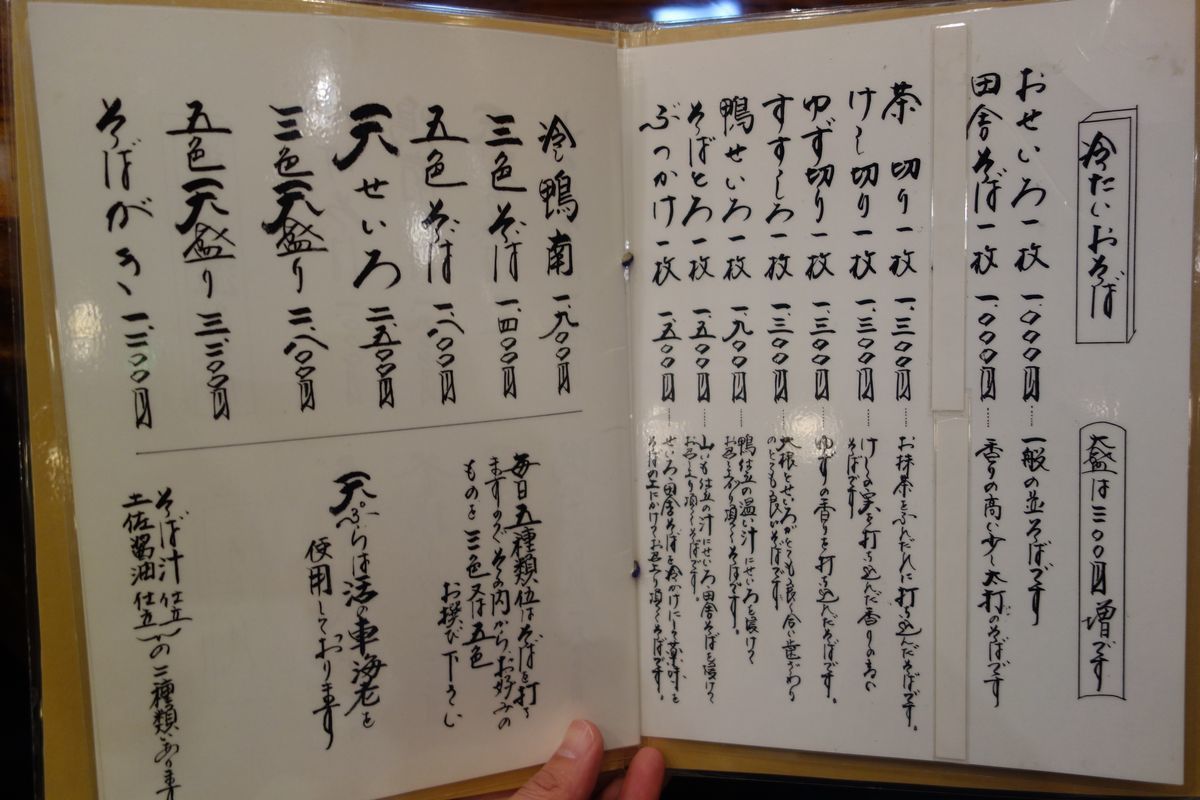 冷たいおそば
大盛は三〇〇円増です
おせいろ一枚 一、〇〇〇円……一般の並そばです
田舎そば一枚 一、〇〇〇円……香りの高い少し太打のそばです
茶切り一枚 一、三〇〇円……お抹茶をふんだんに打ち込んだそばです。
けし切り一枚 一、三〇〇円……けしの実を打ち込んだ香りの高い
そばです
ゆず切り一枚 一、三〇〇円……ゆずの香りを打ち込んだそばです。
すずしろ一枚 一、三〇〇円……大根とせいろがとても良く合い歯ざわり
のとても良いそばです
鴨せいろ一枚 一、九〇〇円……鴨仕立の温い汁にせいろを浸けて
お召し上り頂くそばです。
そばとろ一枚 一、五〇〇円……山いも仕立の汁にせいろ、田舎そばを浸けて
お召し上り頂くそばです。
ぶっかけ一枚 一、五〇〇円……せいろ、田舎そばを冷かけにして薬味を
そばの上にかけてお召上り頂くそばです。
冷し鴨南 一、九〇〇円
三色そば 一、四〇〇円
五色そば 一、八〇〇円
天せいろ 二、五〇〇円
三色天盛り 二、八〇〇円
五色天盛り 三、二〇〇円
そばがき 一、二〇〇円
毎日五種類位はそばを打ち
ますのでその内から、お好みの
ものを三色又は五色
お撰び下さい
天ぷらは活の車海老を
使用しております
そば汁仕立
土佐醤油仕立
の二種類あります